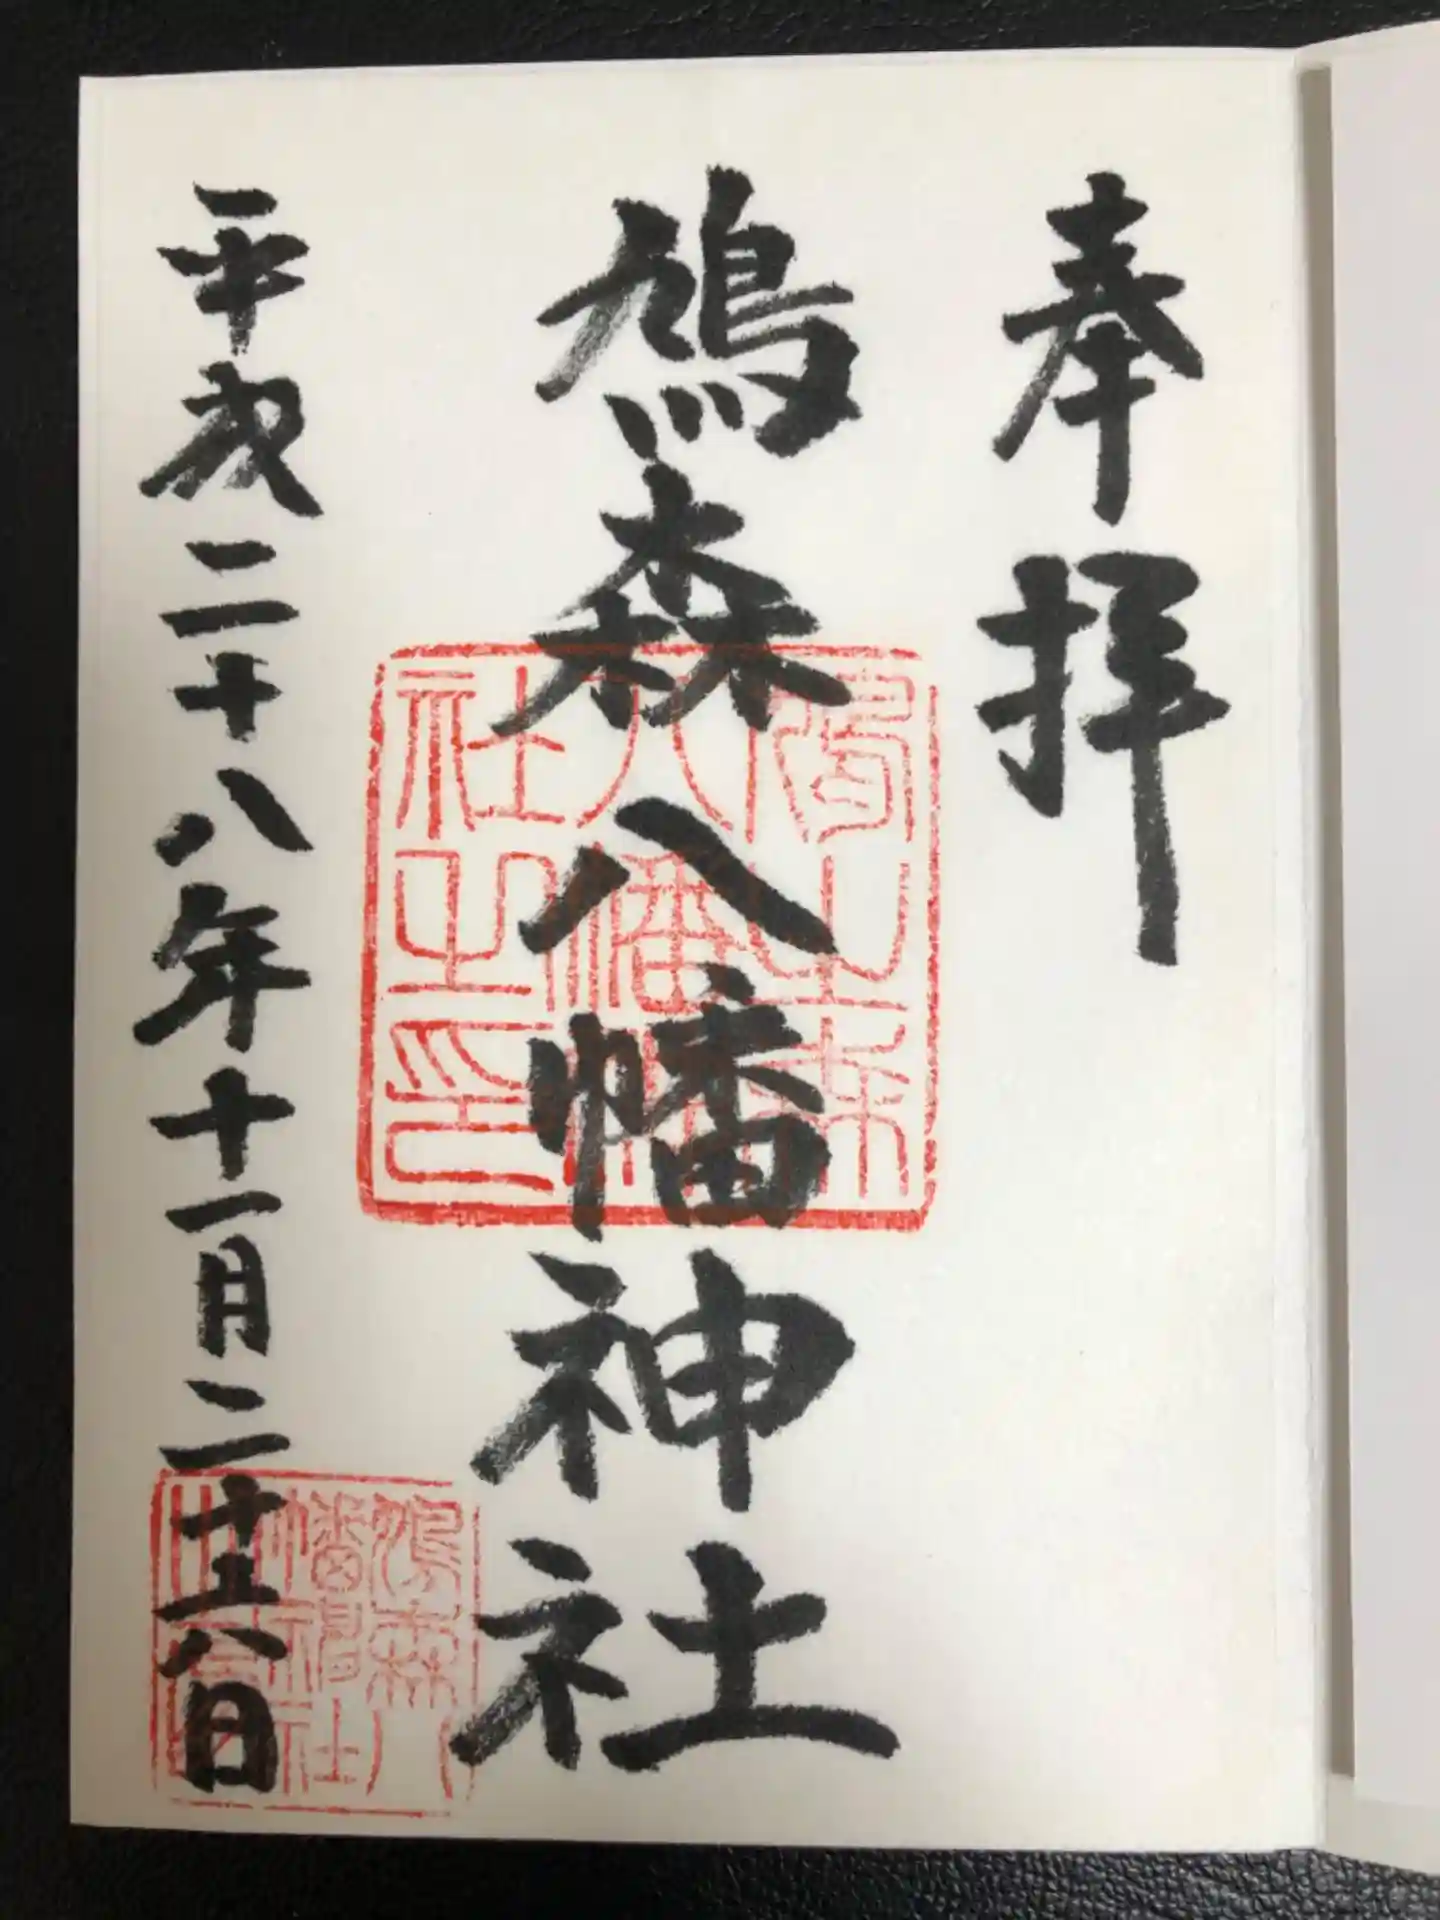 奉拝
鳩森八幡神社
平成二十八年十一月二十六日
鳩之森
八幡神
社之印
鳩森八
幡神社